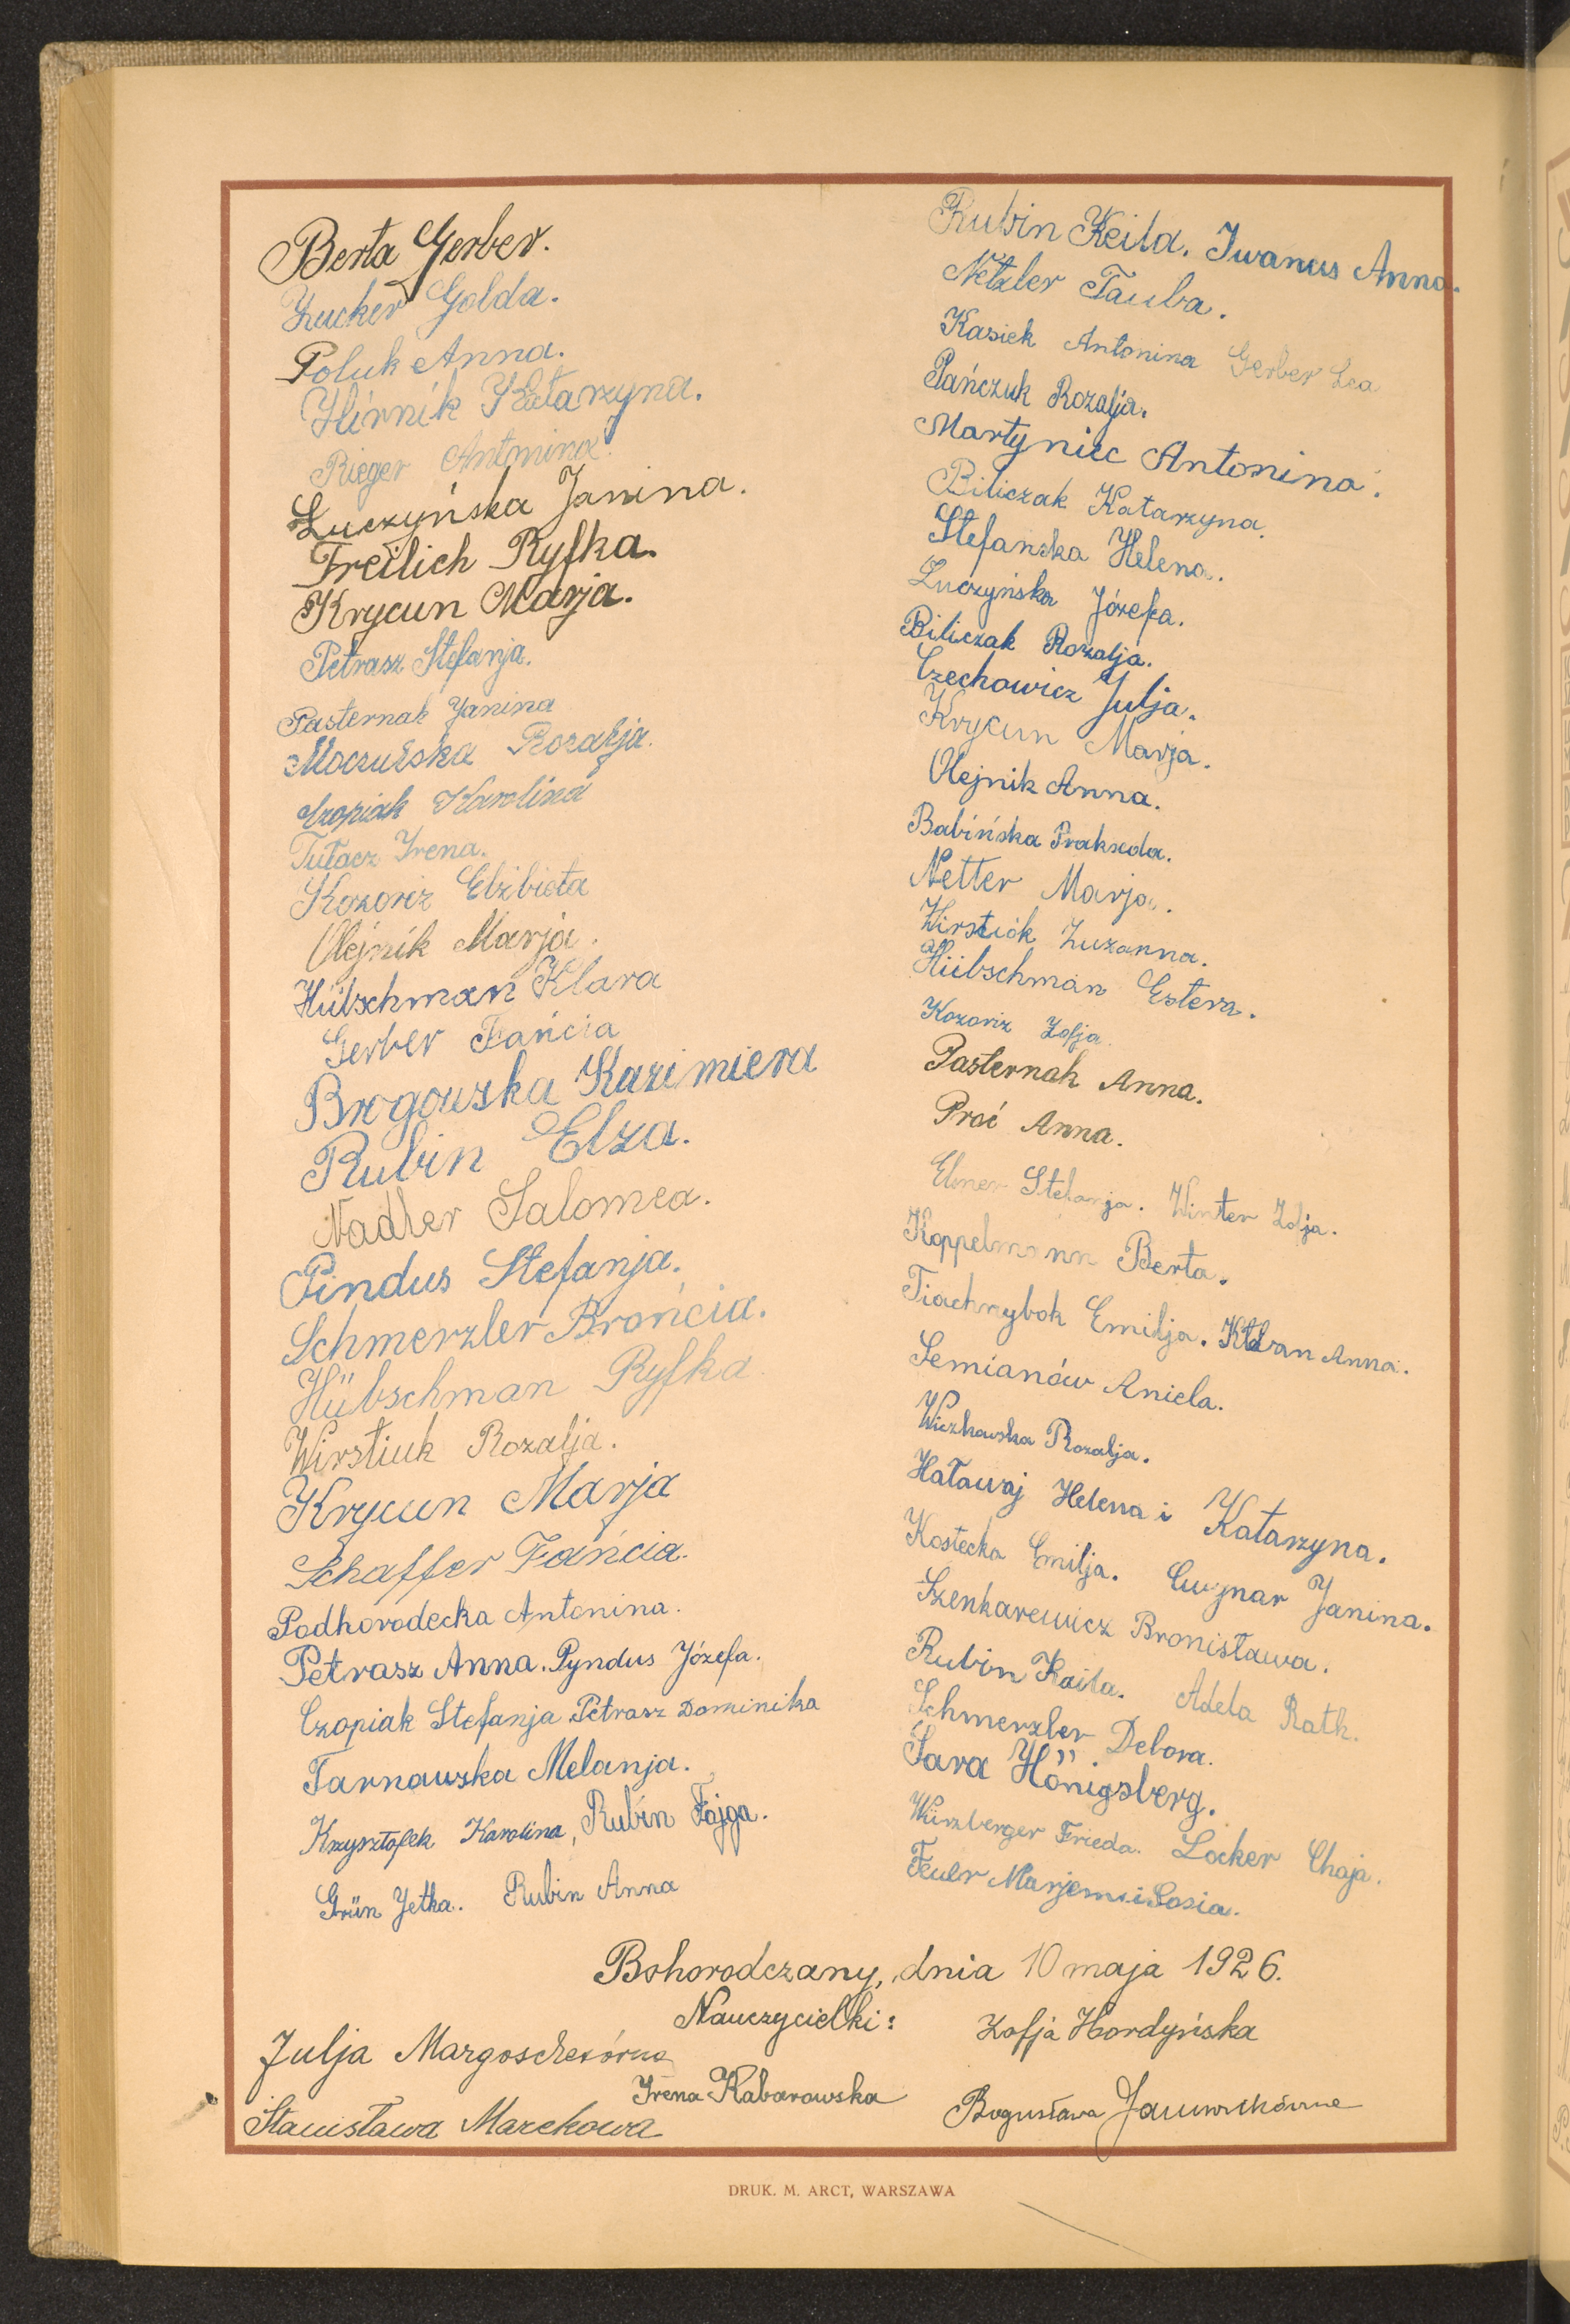 Berta Gerber.
Zucker Golda.
Poluk Anna.
Hirnik Katarzyna.
Rieger Antonina.
Łuczyńska Janina.
Freilich Ryfka.
Krycun Marja.
Petrasz Stefanja.
Pasternak Janina
Moczulska Rozalja.
Czopiak Karolina
Tułacz Irena.
Kozoriz Elżbieta
Olejnik Marja.
Hübschman Klara
Gerber Fańcia
Brogowska Kazimiera
Rubin Elza.
Nadler Salomea.
Pindus Stefanja.
Schmerzler Brońcia.
Hübschman Ryfka
Wirstiuk Rozalja.
Krycun Marja
Schaffer Fańcia.
Podhorodecka Antonina.
Petrasz Anna. Pyndus Józefa.
Czopiak Stefanja Petrasz Dominika
Tarnawska Melanja.
Krzysztofek Karolina, Rubin Fajga.
Grün Jetka. Rubin Anna
Rubin Keila. Iwanus Anna.
Netzler Tauba.
Kasiek Antonina Gerber Lea
Pańczuk Rozalja.
Martyniec Antonina.
Biliczak Katarzyna.
Stefanska Helena.
Łuczyńska Józefa.
Biliczak Rozalja.
Czechowicz Julja.
Krycun Marja.
Olejnik Anna.
Babińska Prakseda.
Netter Marja.
Wirstiuk Zuzanna.
Hübschman Estera.
Kozoriz Zofja.
Pasternak Anna.
Proć Anna.
Ebner Stefanja. Winter Zofja.
Koppelmann Berta.
Tiachnybok Emilja. Anna.
Semianów Aniela.
Rozalja.
Hatawaj Helena i Katarzyna.
Kostecka Emilja. Janina.
Szenkarewicz Bronisława.
Rubin Kaila. Adela Rath.
Schmerzler Debora.
Sara Hönigsberg.
Würzberger Frieda. Locker Chaja.
Feuer Marjem i Sosia.
Bohorodczany, dnia 10 maja 1926.
Nauczycielki:
Zofja Hordyńska
Julja Margoschesówna
Irena Kabarowska
Bogusława
Stanisława Marekowa
DRUK. M. ARCT, WARSZAWA